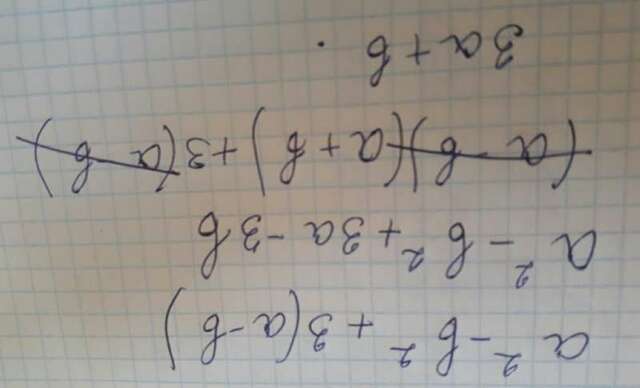 a² - b² + 3(a - b)
a² - b² + 3a - 3b
(a - b)(a + b) + 3(a - b)
3a + b .